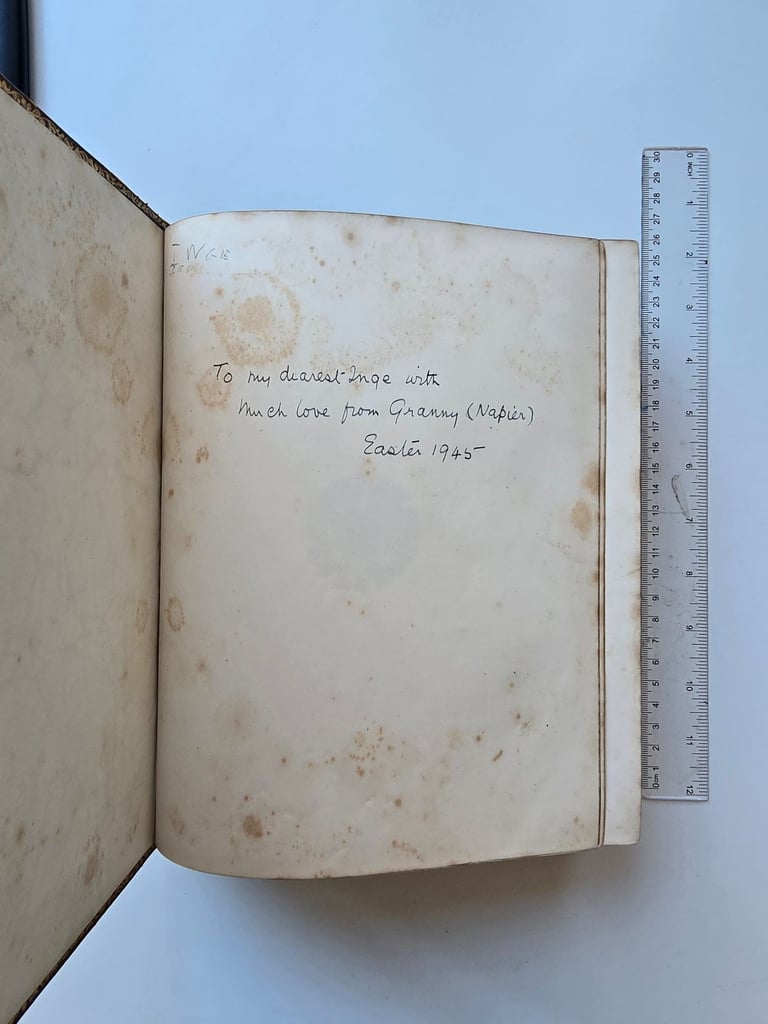 INGE
To my dearest Inge with
much love from Granny (Napier)
Easter 1945
30 29 28 27 26 25 24 23 22 21 20 19 18 17 16 15 14 13 12 11 10 9 8 7 6 5 4 3 2 1 0cm
0 INCH 1 2 3 4 5 6 7 8 9 10 11 12